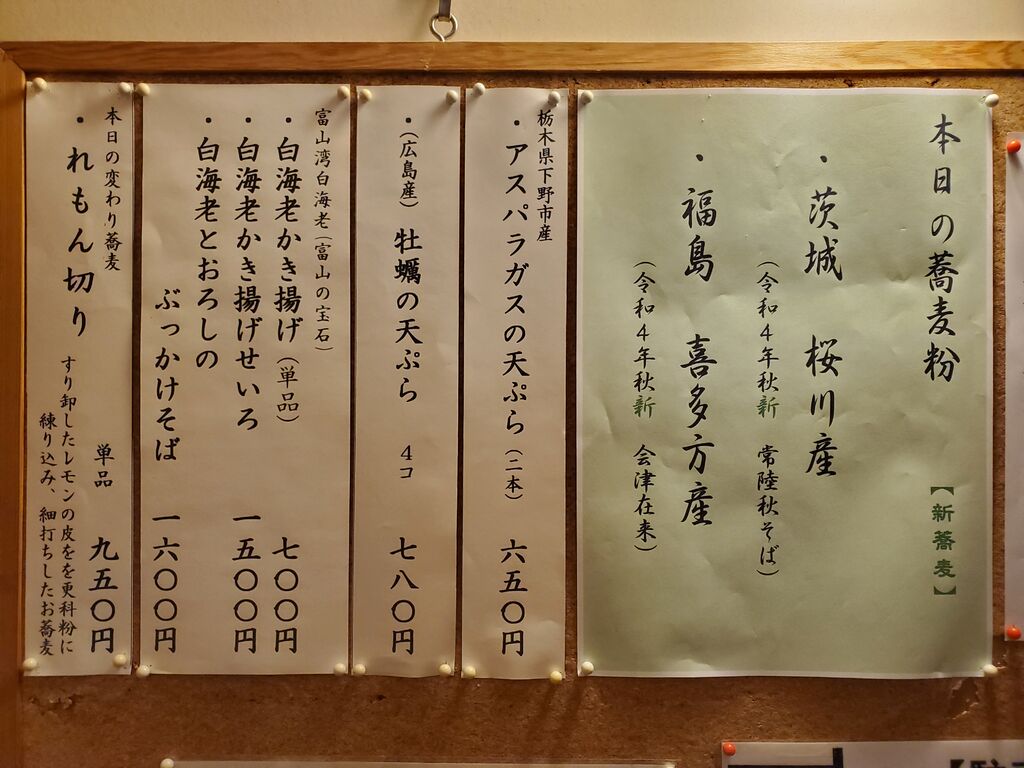 本日の蕎麦粉 【新蕎麦】
・茨城 桜川産
(令和4年秋新 常陸秋そば)
・福島 喜多方産
(令和4年秋新 会津在来)
栃木県下野市産
・アスパラガスの天ぷら(二本) 六五〇円
・(広島産) 牡蠣の天ぷら 4コ 七八〇円
富山湾白海老(富山の宝石)
・白海老かき揚げ(単品) 七〇〇円
・白海老かき揚げせいろ 一五〇〇円
・白海老とおろしの
ぶっかけそば 一六〇〇円
本日の変わり蕎麦
・れもん切り 単品 九五〇円
すり卸したレモンの皮をを更科粉に
練り込み、細打ちしたお蕎麦